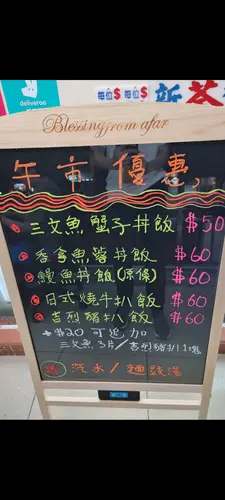 deliveroo
每位$ 每位$ 新茶
Blessing from afar
午市優惠
三文魚蟹子丼飯 $50
吞拿魚蓉丼飯 $60
鰻魚丼飯(原條) $60
日式燒牛扒飯 $60
吉烈豬扒飯 $60
+$20 可追加
三文魚3片/吉烈豬扒1塊
送 汽水/麵豉湯